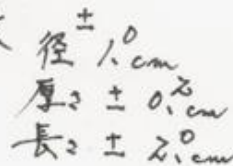 径 ± 1.0cm
厚さ ± 0.2cm
長さ ± 2.0cm